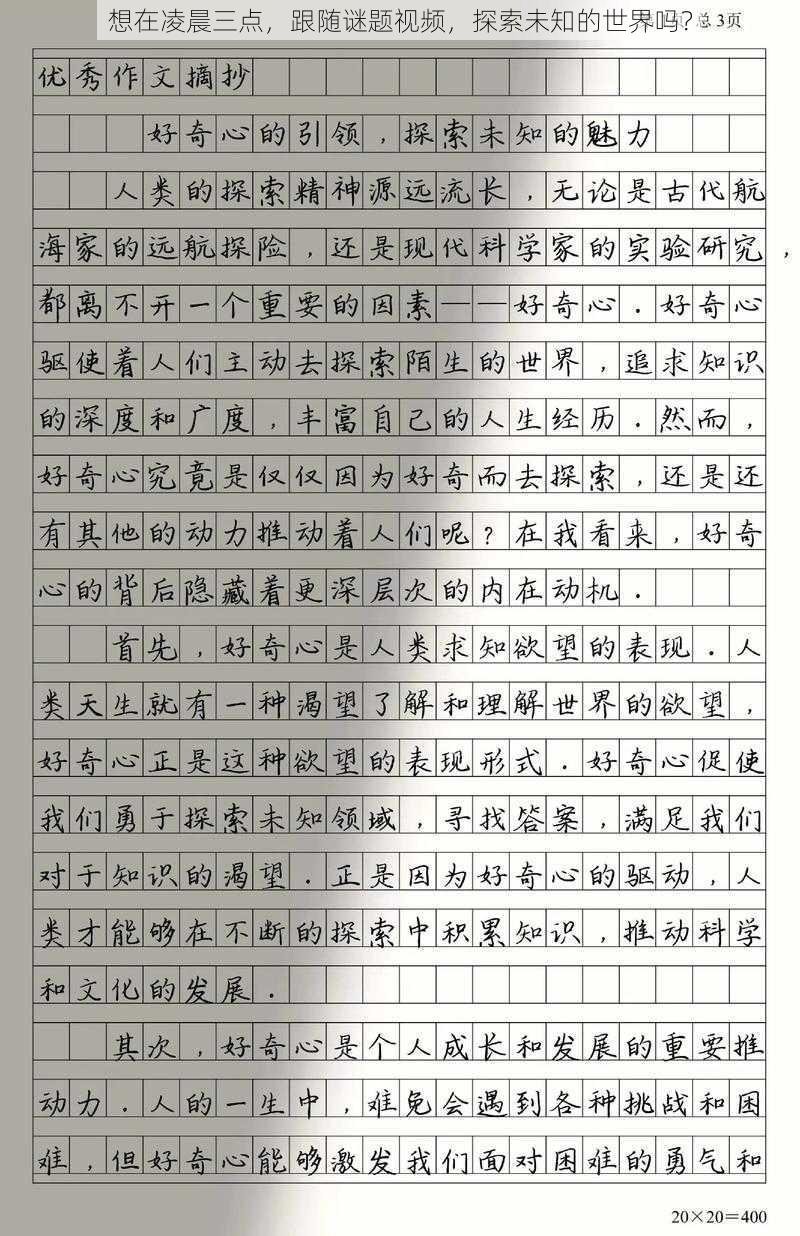 想在凌晨三点，跟随谜题视频，探索未知的世界吗？
页 总 3页
优秀作文摘抄
好奇心的引领，探索未知的魅力
人类的探索精神源远流长，无论是古代航
海家的远航探险，还是现代科学家的实验研究，
都离不开一个重要的因素——好奇心．好奇心
驱使着人们主动去探索陌生的世界，追求知识
的深度和广度，丰富自己的人生经历．然而，
好奇心究竟是仅仅因为好奇而去探索，还是还
有其他的动力推动着人们呢？在我看来，好奇
心的背后隐藏着更深层次的内在动机．
首先，好奇心是人类求知欲望的表现．人
类天生就有一种渴望了解和理解世界的欲望，
好奇心正是这种欲望的表现形式．好奇心促使
我们勇于探索未知领域，寻找答案，满足我们
对于知识的渴望．正是因为好奇心的驱动，人
类才能够在不断的探索中积累知识，推动科学
和文化的发展．
其次，好奇心是个人成长和发展的重要推
动力．人的一生中，难免会遇到各种挑战和困
难，但好奇心能够激发我们面对困难的勇气和
20×20＝400